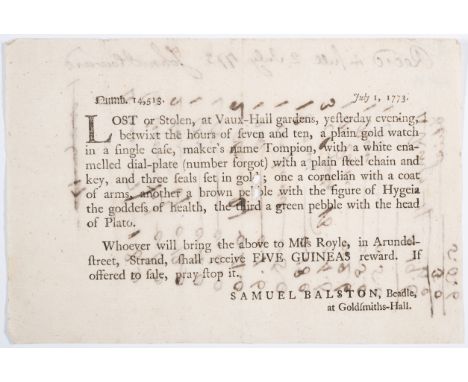 Numb. 14,513. July 1, 1773.
LOST or Stolen, at Vaux-Hall gardens, yesterday evening,
betwixt the hours of seven and ten, a plain gold watch
in a single case, maker's name Tompion, with a white ena-
melled dial-plate (number forgot) with a plain steel chain and
key, and three seals set in gold; one a cornelian with a coat
of arms, another a brown pebble with the figure of Hygeia
the goddess of health, the third a green pebble with the head
of Plato.
Whoever will bring the above to Miss Royle, in Arundel-
street, Strand, shall receive FIVE GUINEAS reward. If
offered to sale, pray stop it.
SAMUEL BALSTON, Beadle,
at Goldsmiths-Hall.